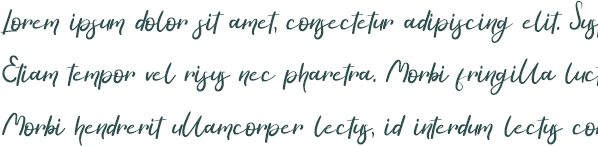 Lorem ipsum dolor sit amet, consectetur adipiscing elit. Sus
Etiam tempor vel risus nec pharetra. Morbi fringilla luct
Morbi hendrerit ullamcorper lectus, id interdum lectus con